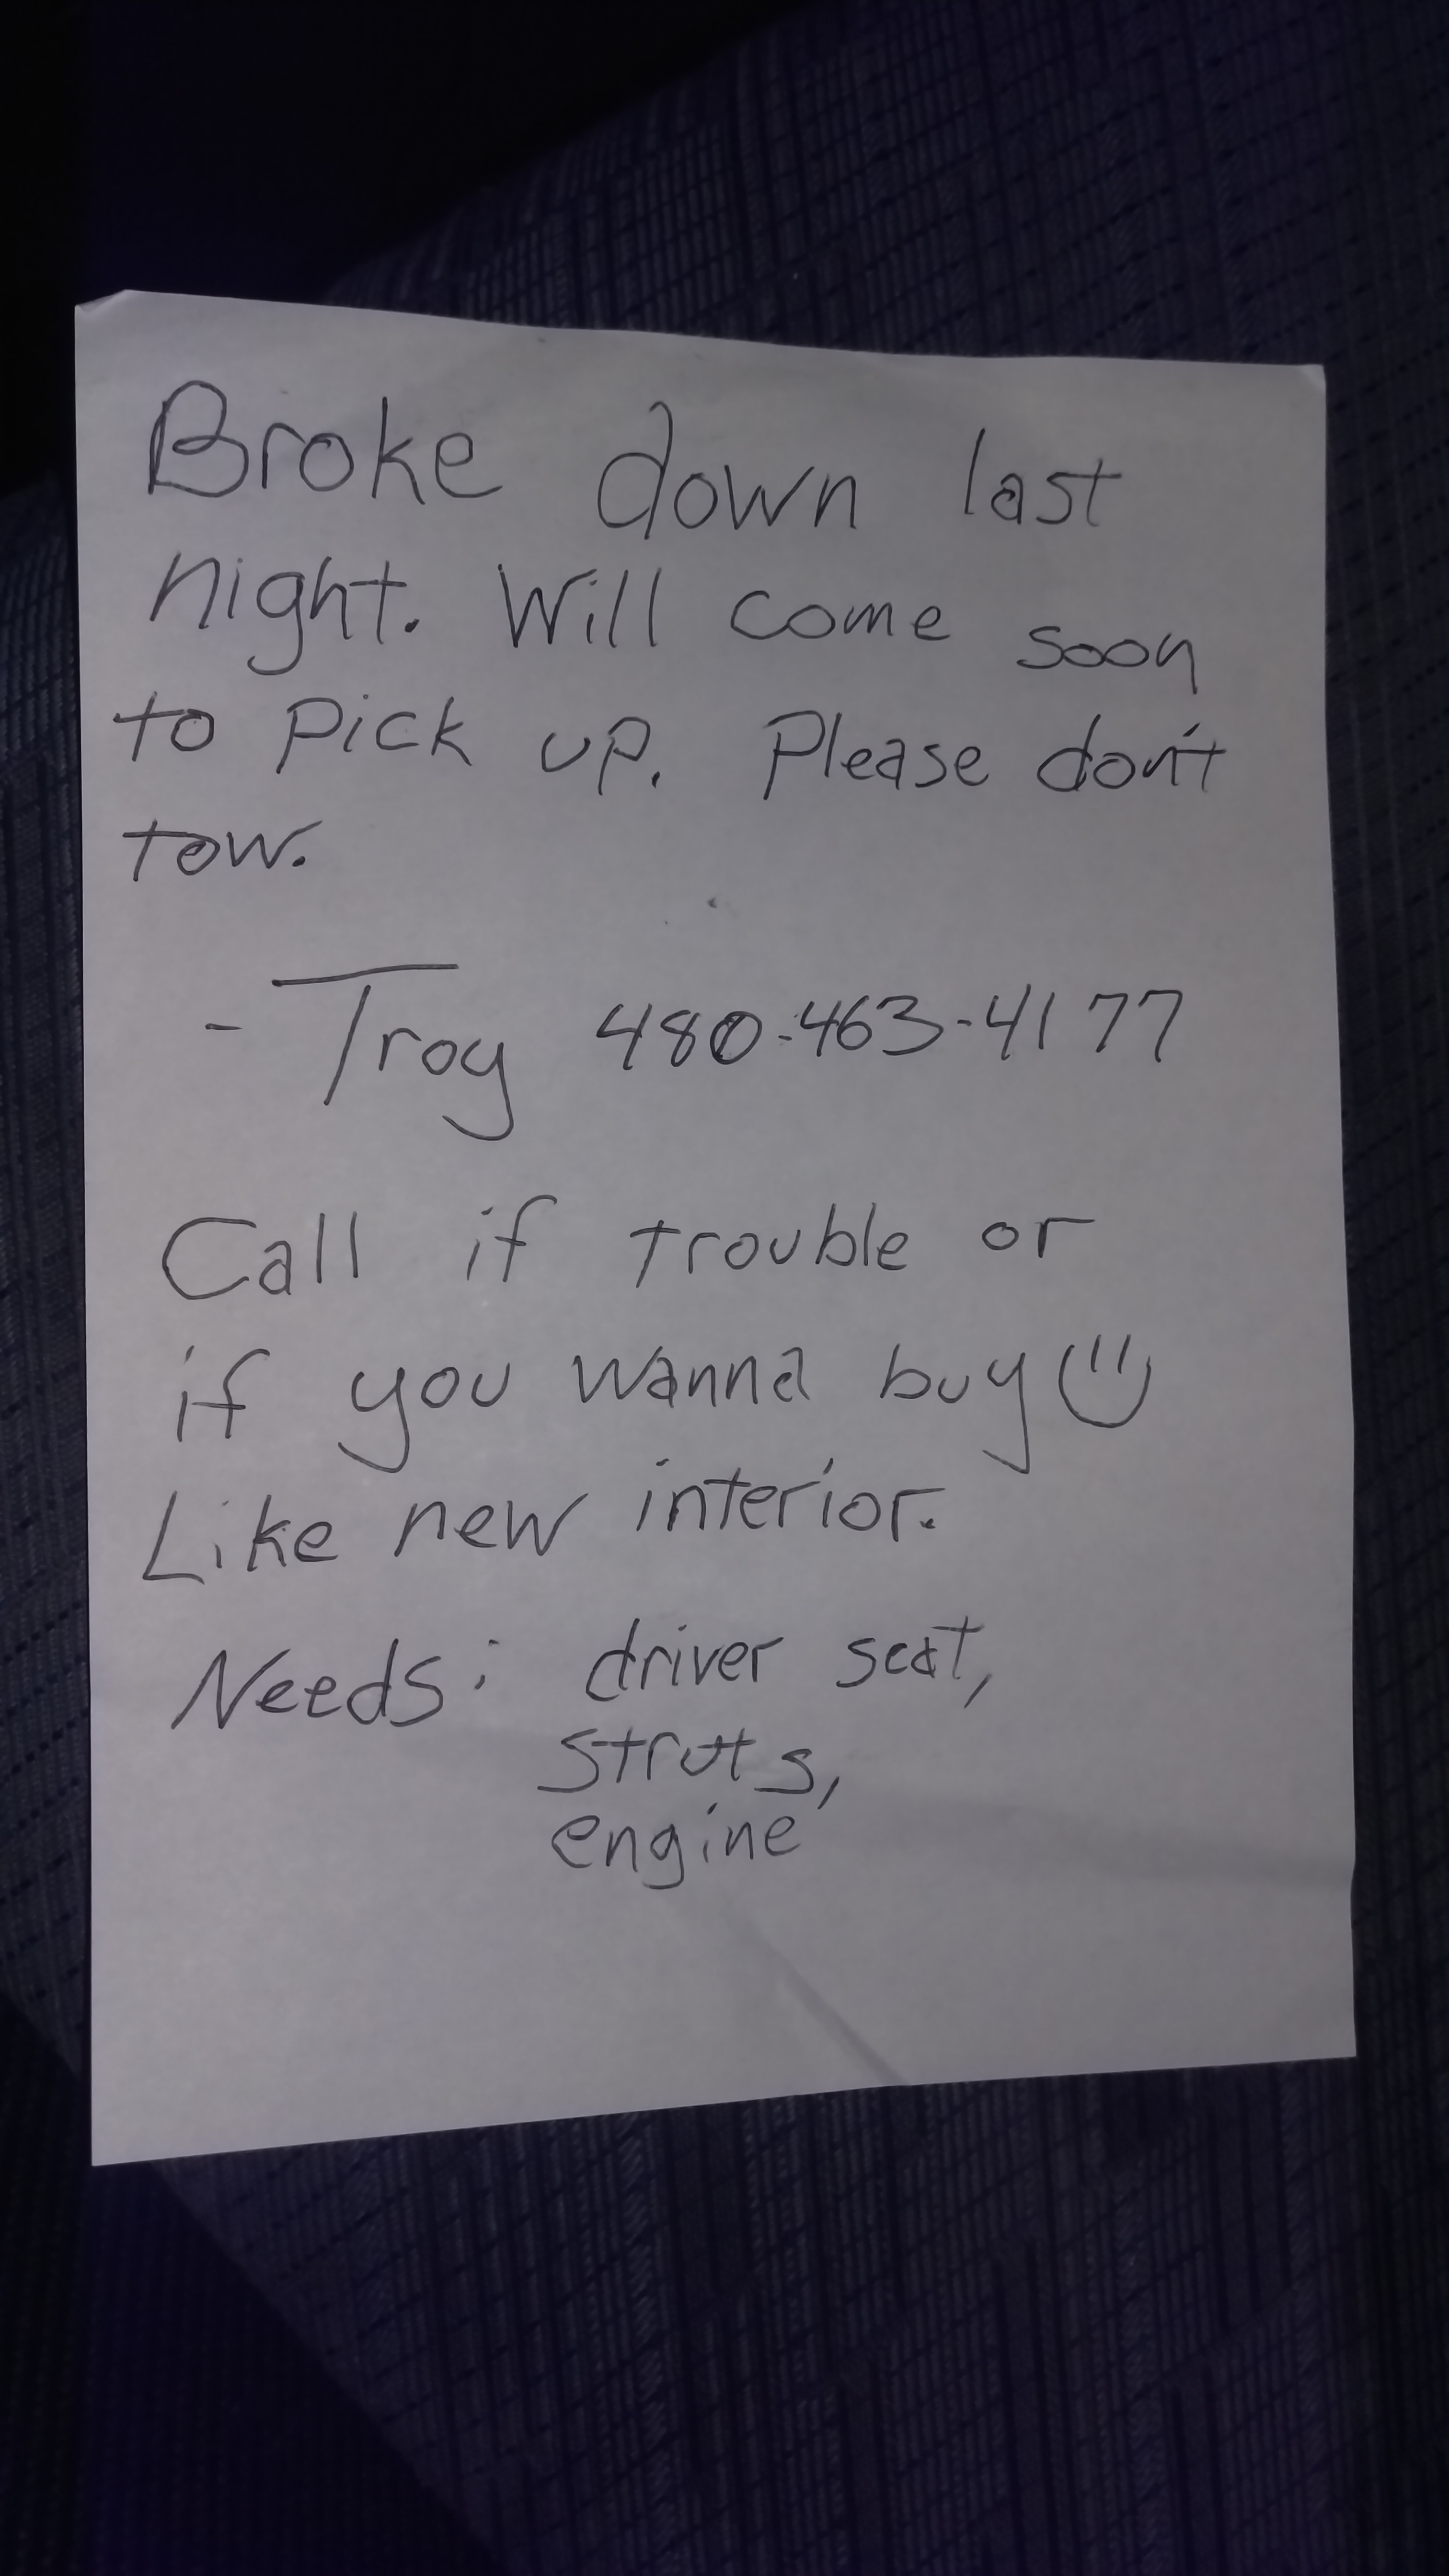 Broke down last
night. Will come soon
to pick up. Please don't
tow.
- Troy 480-463-4177
Call if trouble or
if you wanna buy
Like new interior.
Needs: driver seat,
struts,
engine